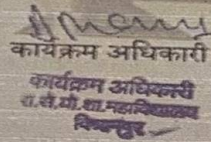 कार्यक्रम अधिकारी
कार्यक्रम अधिकारी
रा.से.यो.शा.महाविद्यालय